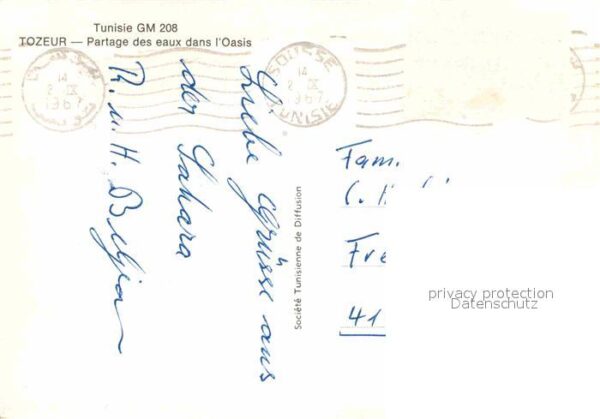 Tunisie GM 208
TOZEUR — Partage des eaux dans l'Oasis
14
2 IX
1967
SOUSSE
14
2 IX
1967
TUNISIE
Liebe Grüsse aus
der Sahara
R. u. H.
Société Tunisienne de Diffusion
Fam.
C.
Fre
41
privacy protection
Datenschutz